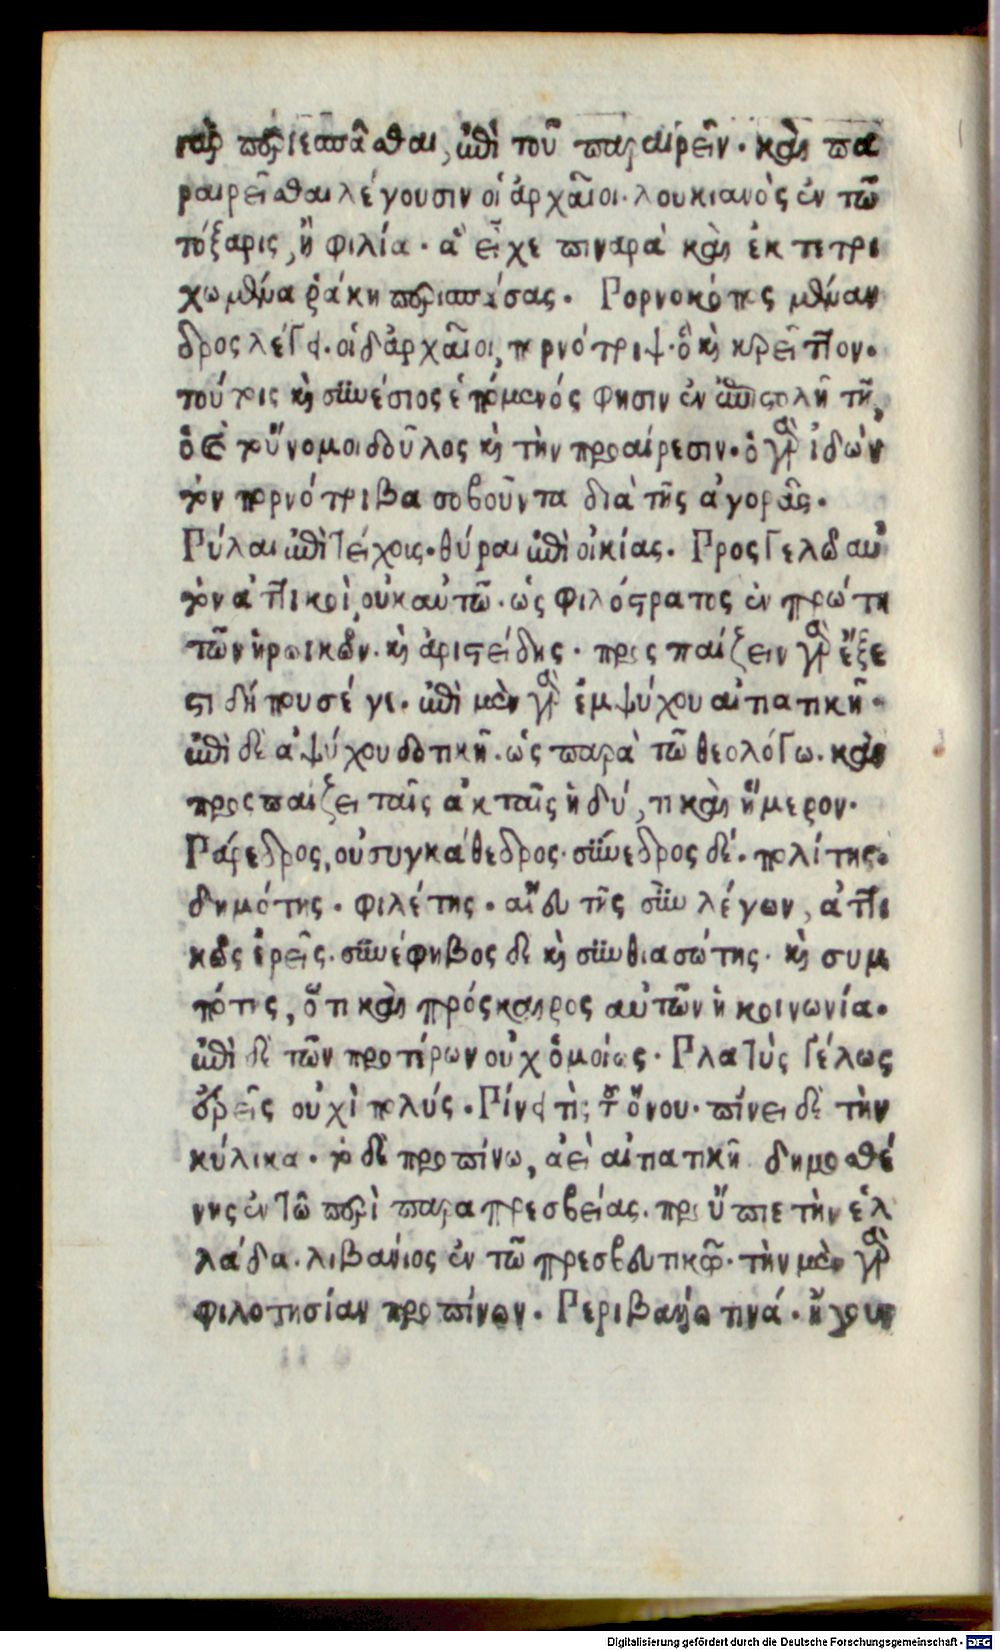 γὰρ περιεσπᾶσθαι, ἐπὶ τοῦ παραιρεῖν. καὶ πα
ραιρεῖσθαι λέγουσιν οἱ ἀρχαῖοι. λουκιανὸς ἐν τῶ
τόξαρις, ἢ φιλία. ἃ εἶχε πιναρὰ καὶ ἐκτετρι
χωμένα ῥάκη περισπάσας. Πορνοκόπος μέναν
δρος λέγει. οἱ δ' ἀρχαῖοι, πορνότριψ. ὃ καὶ κρεῖττον.
τούτοις καὶ συνέσιος ἑπόμενός φησιν ἐν ἐπιστολῆ τῆ,
ὁ εὐθύνομοι δοῦλος καὶ τὴν προαίρεσιν. ὁ γὰρ ἰδὼν
τὸν πορνότριβα σοβοῦντα διὰ τῆς ἀγορᾶς.
Πύλαι ἐπὶ τείχοις. θύραι ἐπὶ οἰκίας. Προσγελῶ αὐ
τὸν ἀττικοὶ, οὐκ αὐτῶ. ὡς φιλόστρατος ἐν πρώτη
τῶν ἡρωικῶν. καὶ ἀριστείδης. προσπαίζειν γὰρ ἔξε
στι δήπου σέ γε. ἐπὶ μὲν γὰρ ἐμψύχου αἰτιατικῆ.
ἐπὶ δὲ ἀψύχου δοτικῆ. ὡς παρὰ τῶ θεολόγω. καὶ
προσπαίζει ταῖς ἀκταῖς ἡδύ, τι καὶ ἥμερον.
Πάρεδρος, οὐ συγκάθεδρος. σύνεδρος δέ. πολίτης.
δημότης. φιλέτης. ἄνευ τῆς σὺν λέγων, ἀττι
κῶς ἐρεῖς. συνέφηβος δὲ καὶ συνθιασώτης. καὶ συμ
πότης, ὅτι καὶ πρόσκαιρος αὐτῶν ἡ κοινωνία.
ἐπὶ δὲ τῶν προτέρων οὐχ ὁμοίως. Πλατὺς γέλως
ἐρεῖς οὐχὶ πολύς. Πίνει τὶς τοῦ οἴνου. πίνει δὲ τὴν
κύλικα. τὸ δὲ προπίνω, ἀεὶ αἰτιατικῆ δημοσθέ
νης ἐν τῶ περὶ παραπρεσβείας. προὔπιε τὴν ἑλ
λάδα. λιβάνιος ἐν τῶ πρεσβευτικῶ. τὴν μὲν γὰρ
φιλοτησίαν προπίνων. Περιβαλῶ τινά. ἤγουν
Digitalisierung gefördert durch die Deutsche Forschungsgemeinschaft - DFG